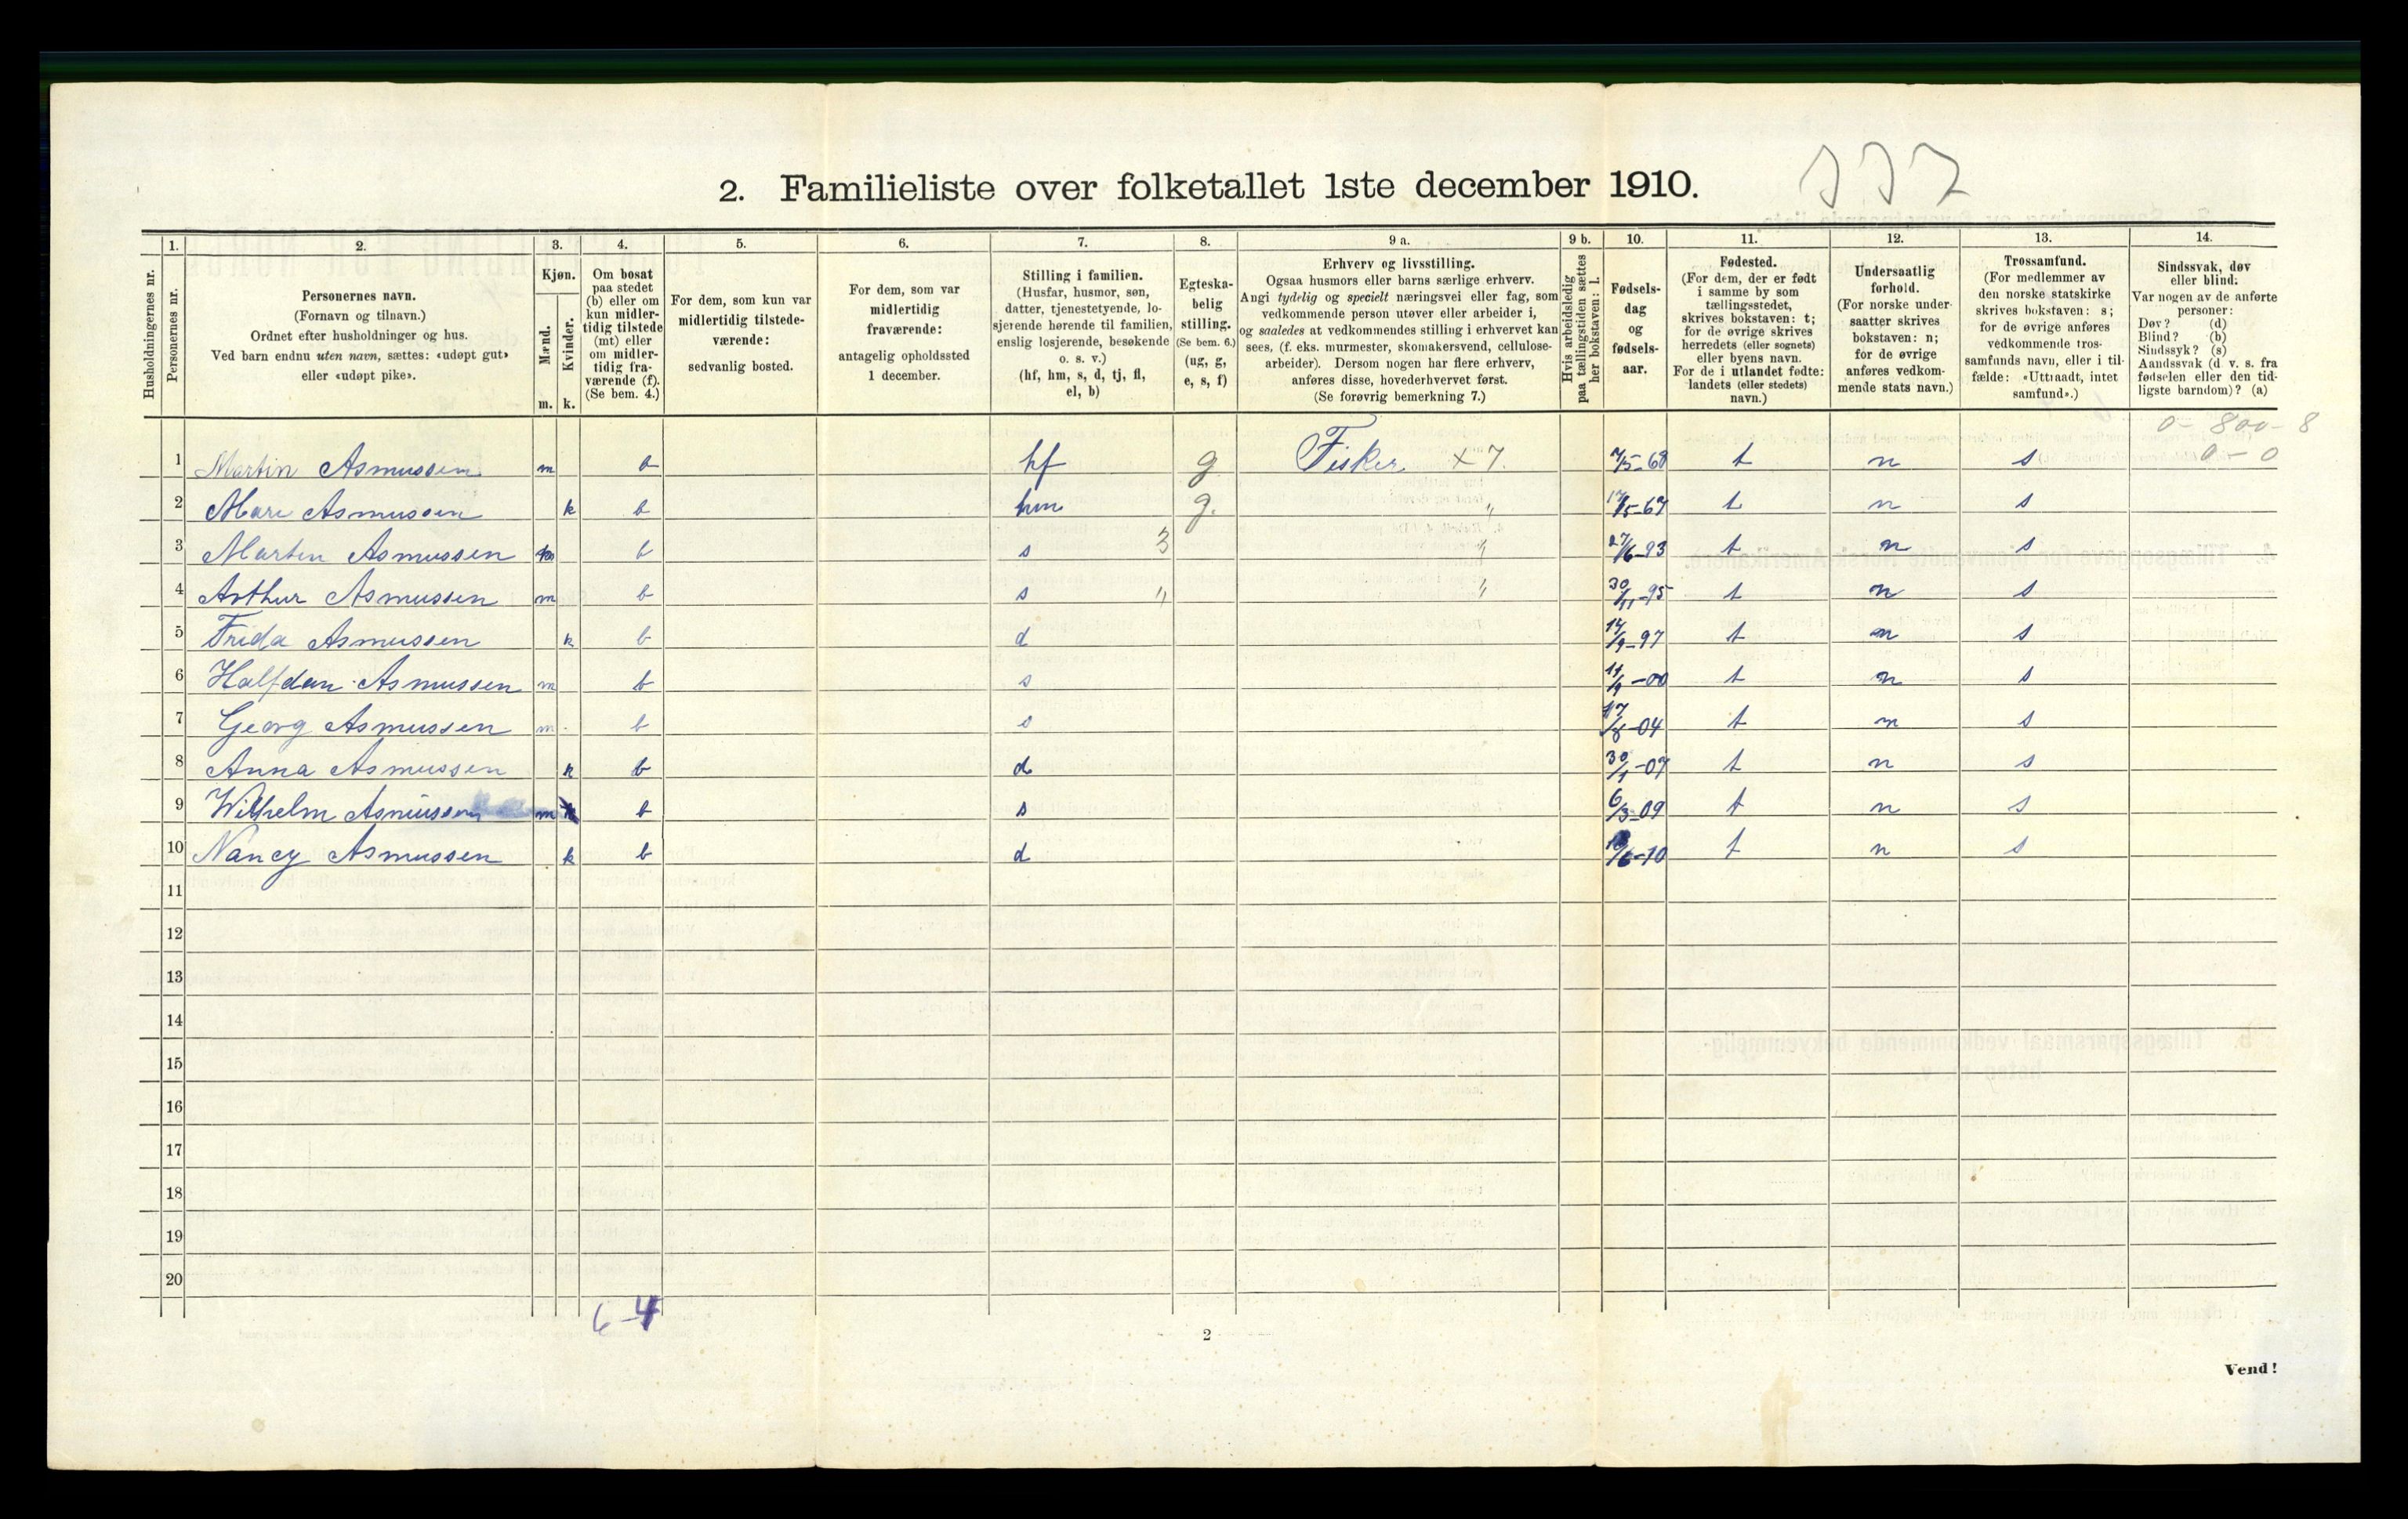 337
2. Familieliste over folketallet 1ste december 1910.
Husholdningernes nr.
1. Personernes nr.
2. Personernes navn. (Fornavn og tilnavn.) Ordnet efter husholdninger og hus. Ved barn endnu uten navn, sættes: «udøpt gut» eller «udøpt pike».
3. Kjøn. Mænd. m. Kvinder. k.
4. Om bosat paa stedet (b) eller om kun midlertidig tilstede (mt) eller om midlertidig fraværende (f). (Se bem. 4.)
5. For dem, som kun var midlertidig tilstedeværende: sedvanlig bosted.
6. For dem, som var midlertidig fraværende: antagelig opholdssted 1 december.
7. Stilling i familien. (Husfar, husmor, søn, datter, tjenestetyende, losjerende hørende til familien, enslig losjerende, besøkende o. s. v.) (hf, hm, s, d, tj, fl, el, b)
8. Egteskabelig stilling. (Se bem. 6.) (ug, g, e, s, f)
9 a. Erhverv og livsstilling. Ogsaa husmors eller barns særlige erhverv. Angi tydelig og specielt næringsvei eller fag, som vedkommende person utøver eller arbeider i, og saaledes at vedkommendes stilling i erhvervet kan sees, (f. eks. murmester, skomakersvend, cellulosearbeider). Dersom nogen har flere erhverv, anføres disse, hovederhvervet først. (Se forøvrig bemerkning 7.)
9 b. Hvis arbeidsledig paa tællingstiden sættes her bokstaven: l.
10. Fødselsdag og fødselsaar.
11. Fødested. (For dem, der er født i samme by som tællingsstedet, skrives bokstaven: t; for de øvrige skrives herredets (eller sognets) eller byens navn. For de i utlandet fødte: landets (eller stedets) navn.)
12. Undersaatlig forhold. (For norske undersaatter skrives bokstaven: n; for de øvrige anføres vedkommende stats navn.)
13. Trossamfund. (For medlemmer av den norske statskirke skrives bokstaven: s; for de øvrige anføres vedkommende trossamfunds navn, eller i tilfælde: «Uttraadt, intet samfund».)
14. Sindssvak, døv eller blind: Var nogen av de anførte personer: Døv? (d) Blind? (b) Sindssyk? (s) Aandssvak (d. v. s. fra fødselen eller den tidligste barndom)? (a)
0 - 800 - 8
1 Martin Asmussen m b hf g Fisker x 7. 7/5-68 t n s 0 - 0
2 Mari Asmussen k b hm g. " 17/5-67 t n s
3 Martin Asmussen m b s 3 " 27/6-93 t n s
4 Arthur Asmussen m b s " " 30/11-95 t n s
5 Frida Asmussen k b d 14/9-97 t n s
6 Halfdan Asmussen m b s 11/9-00 t n s
7 Georg Asmussen m b s 17/8-04 t n s
8 Anna Asmussen k b d 30/1-07 t n s
9 Wilhelm Asmussen m b s 6/3-09 t n s
10 Nancy Asmussen k b d /6-10 t n s
11
12
13
14
15
16
17
18
19
20
6-4
2
Vend!